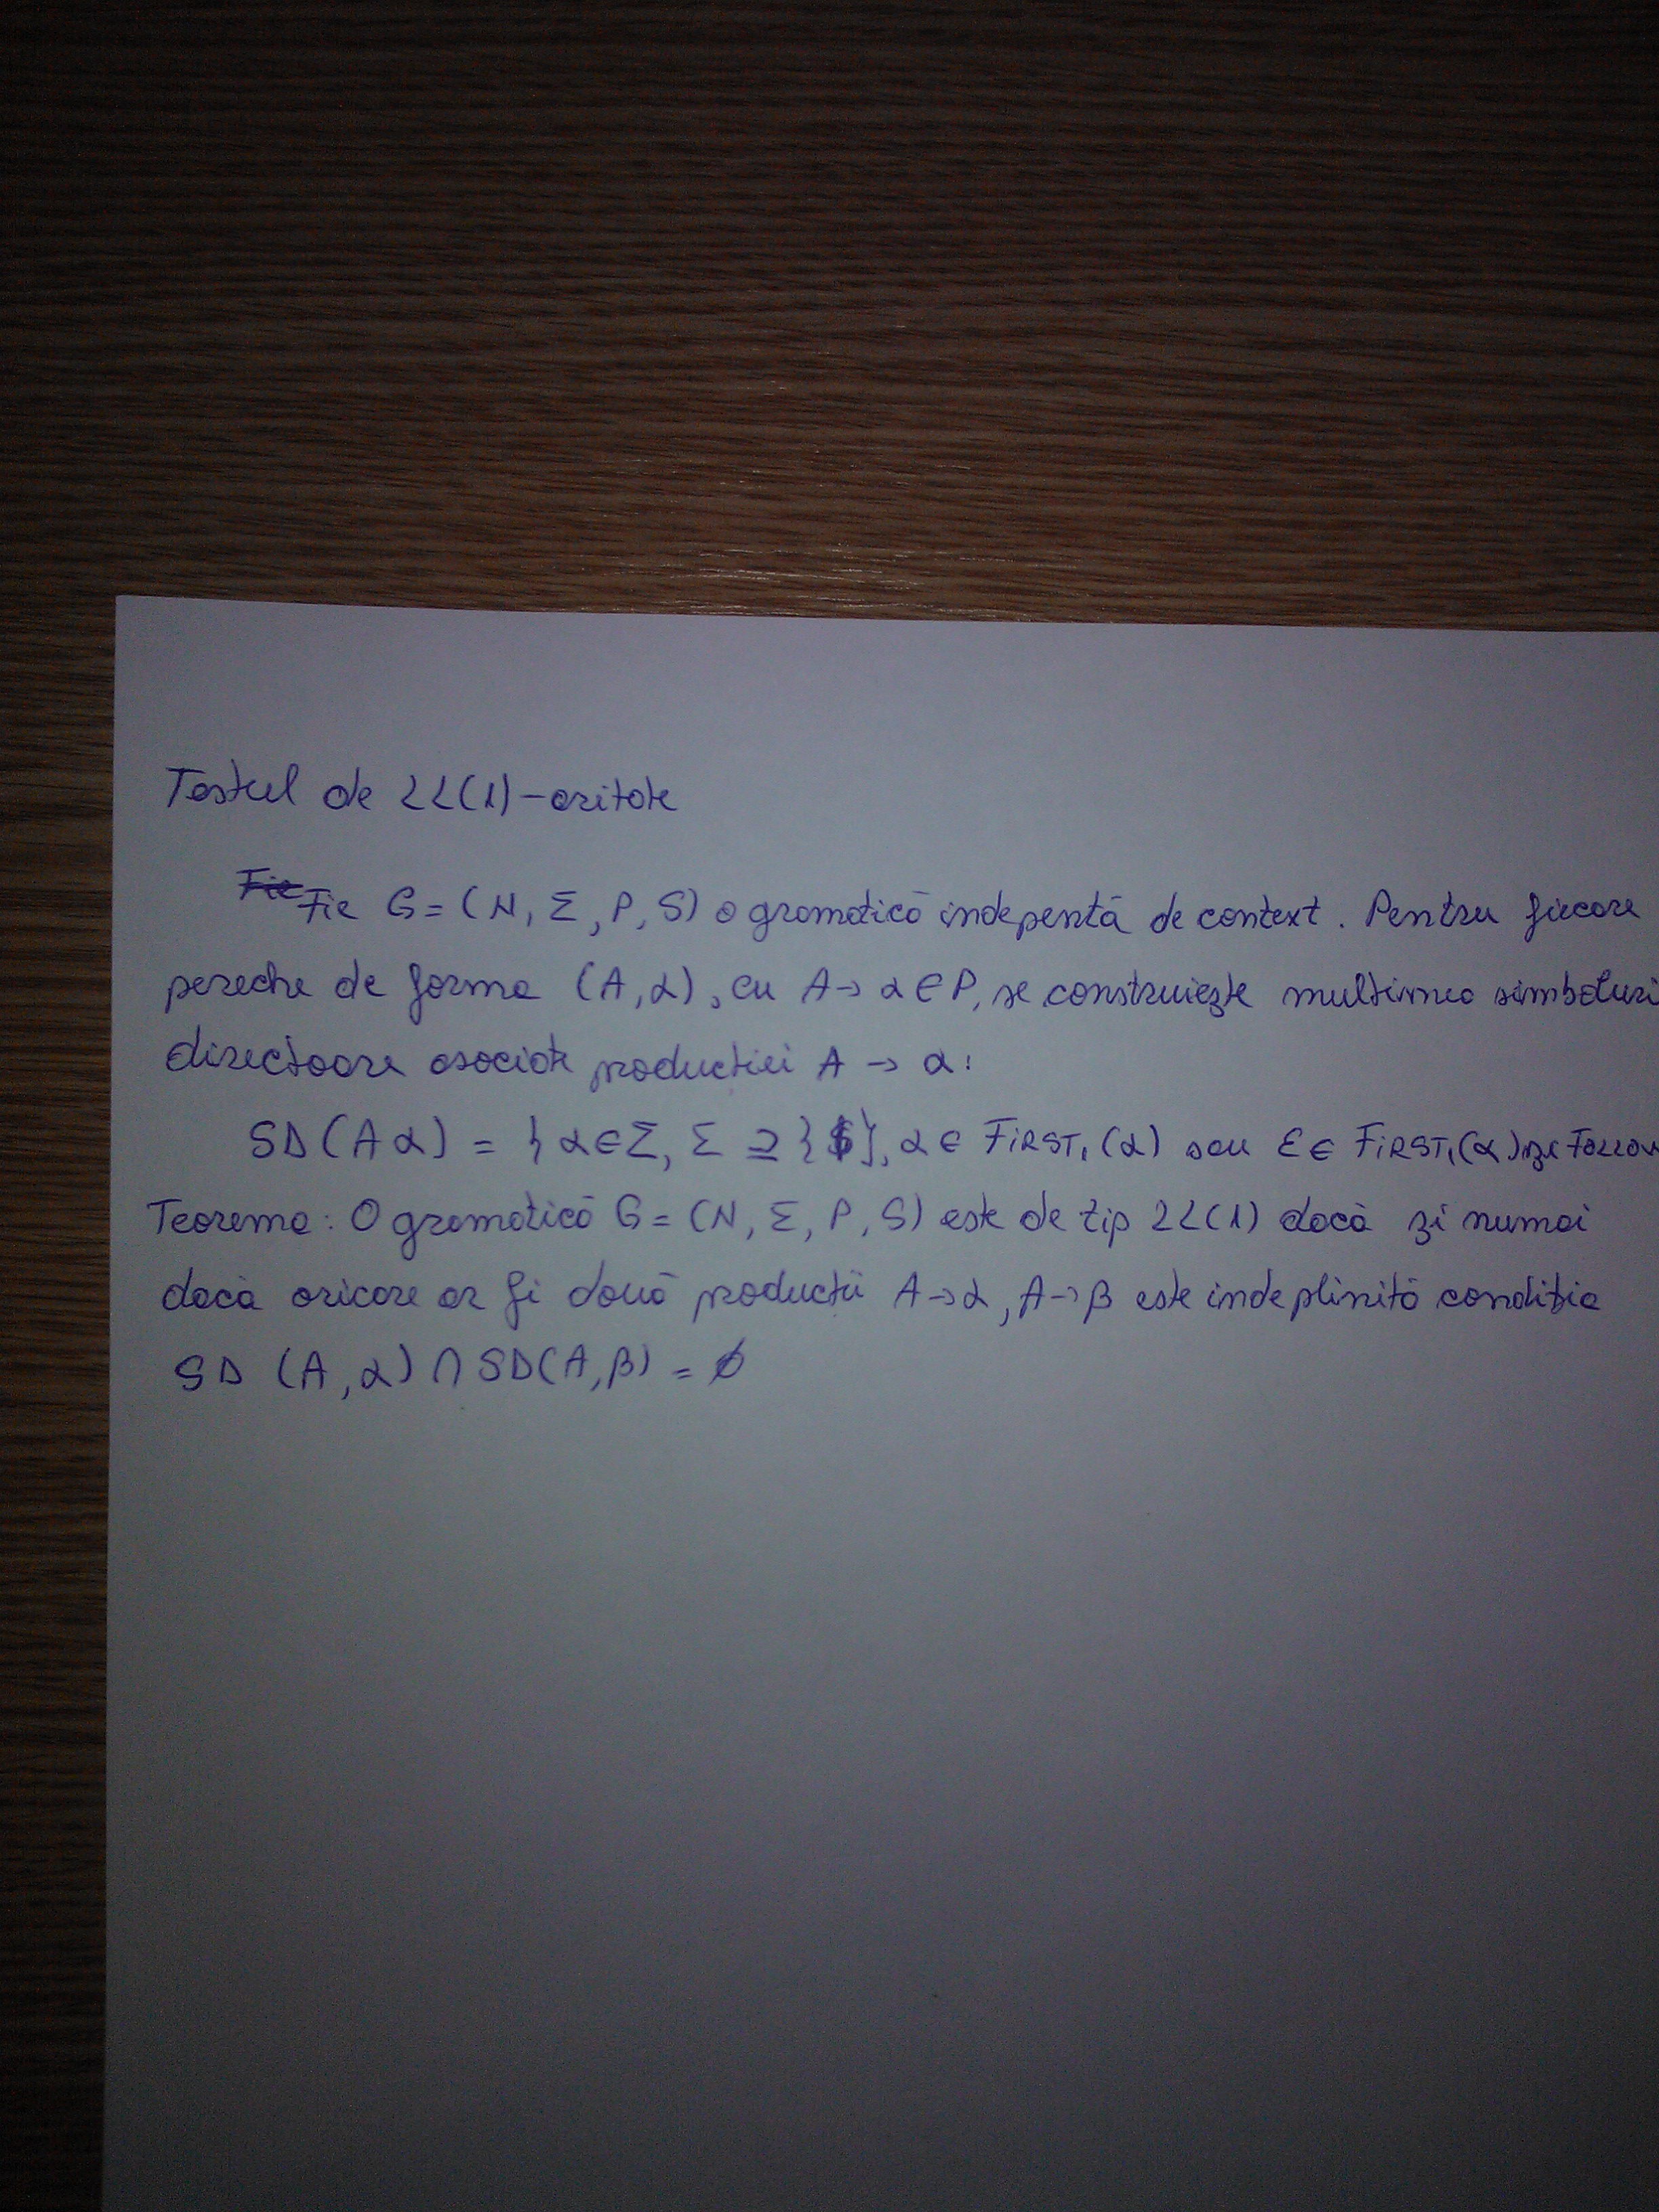 Testul de LL(1)-aritate
Fie Fie G = (N, Σ, P, S) o gramatică indepentă de context. Pentru fiecare
pereche de forma (A, α), cu A → α ∈ P, se construiește multimea simboluri
directoare asociate productiei A → α:
SD(A α) = } α ∈ Σ, Σ ⊇ } $ }, α ∈ FIRST₁(α) sau ε ∈ FIRST₁(α) și Follow
Teorema: O gramatică G = (N, Σ, P, S) este de tip LL(1) dacă și numai
dacă oricare ar fi două productii A → α, A → β este indeplinită condiția
SD (A, α) ∩ SD(A, β) = ∅